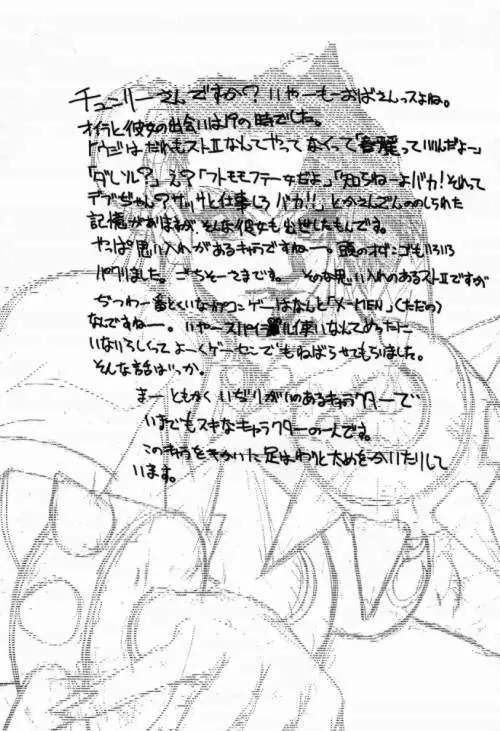 チュンリーさんですか？いやーもーおばさんっスよね。
オイラと彼女の出会いは19の時でした。
トウジはだれもストⅡなんてやってなくって「春麗っていいんだよー」
「ダレソレ？」え？「フトモモフテー女だよ」「知らねーよバカ！それって
デブじゃん？サッサと仕事しろバカ!!」とかさんざんののしられた
記憶がありますが、そんな彼女も出世したもんです。
やっぱ思い入れがあるキャラですねー。頭のオダンゴもいろいろ
パクりました。ごちそーさまです。そのな思い入れのあるストⅡですが
ぢつわー番とくいなカプコンゲーはなんと「X-MEN」(ただの)
なんですねー。いやースパイラル使いなんてめったに
いないらしくってよーくゲーセンでもねばらせてもらいました。
そんな話はいっか。
まーともかくいぢりがいのあるキャラクターで
いまでもスキなキャラクターの一人です。
このキャラをキッカイに足はわりと太めをかいたりして
います。